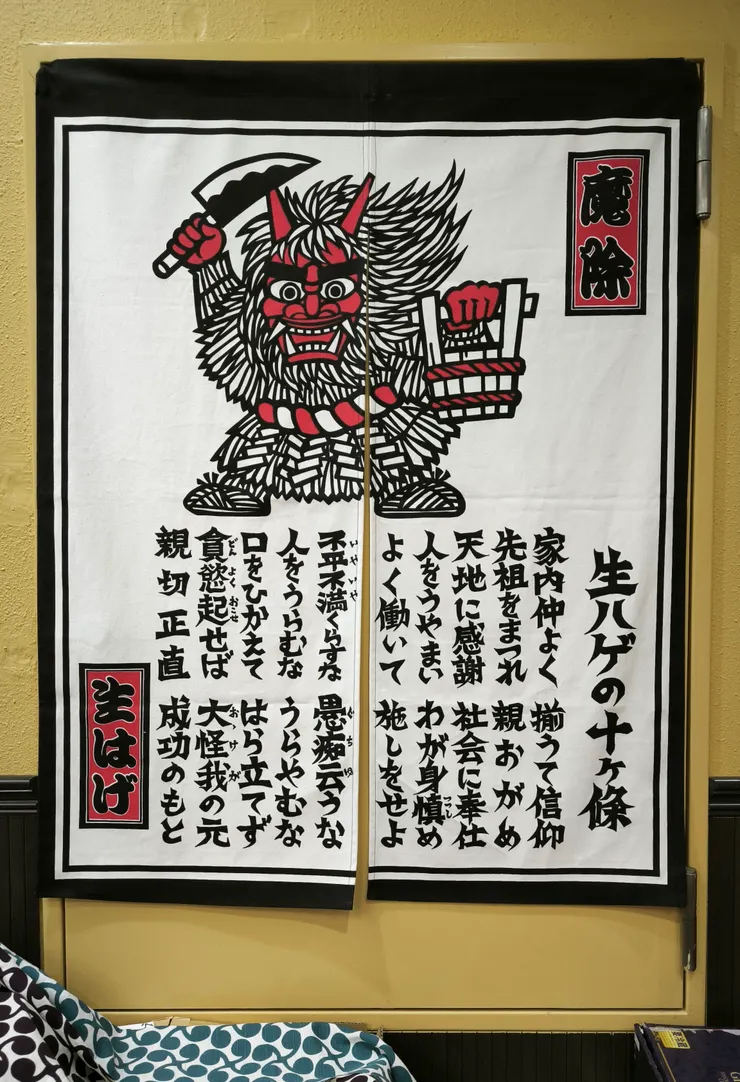 魔除
生ハゲの十ヶ條
家内仲よく 揃うて信仰
先祖をまつれ 親おがめ
天地に感謝 社会に奉仕
人をうやまい わが身慎め
よく働いて 施しをせよ
不平不満くらすな 愚痴云うな
人をうらむな うらやむな
口をひかえて はら立てず
貪慾起せば 大怪我の元
親切正直 成功のもと
生はげ